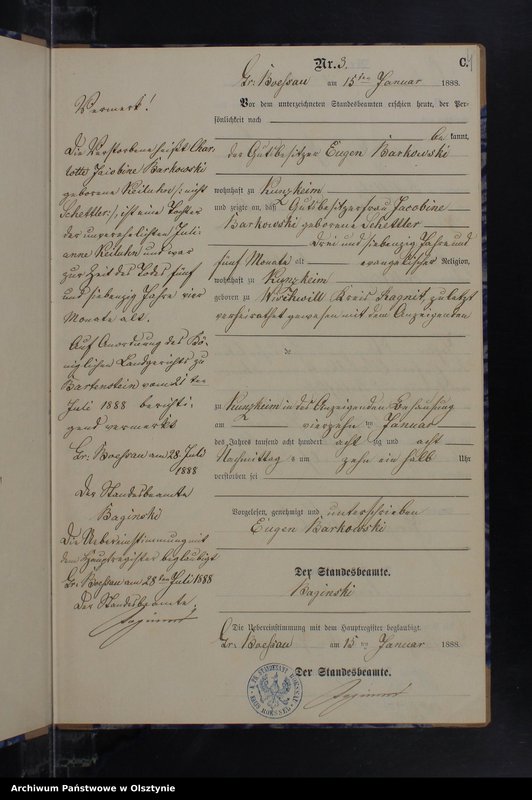 Nr. 3.
C.
Gr. Boessau am 15ten Januar 1888.
Vor dem unterzeichneten Standesbeamten erschien heute, der Per-
sönlichkeit nach
be kannt,
der Gutsbesitzer Eugen Barkowski
wohnhaft zu Kunzkeim
und zeigte an, daß Gutsbesitzerfrau Jacobine
Barkowski geborene Schettler
drei und siebenzig Jahre und
fünf Monate alt evangelischer Religion,
wohnhaft zu Kunzkeim
geboren zu Wischwill Kreis Ragnit zuletzt
verheirathet gewesen mit dem Anzeigenden
de
zu Kunzkeim in des Anzeigenden Behausung
am vierzehn ten Januar
des Jahres tausend acht hundert acht zig und acht
Nachmittag s um zehn ein halb Uhr
verstorben sei
Vorgelesen, genehmigt und unterschrieben
Eugen Barkowski
Der Standesbeamte.
Baginski
Die Uebereinstimmung mit dem Hauptregister beglaubigt.
Gr. Boessau am 15 ten Januar 1888.
Der Standesbeamte.
Vermerk!
Die Verstorbene heißt Char-
lotte Jacobine Barkowski
geborene Keiluhn /: nicht
Schettler :/, ist eine Tochter
der unverehelichten Juli-
anne Keiluhn und war
zur Zeit des Todes fünf
und siebenzig Jahre vier
Monate alt.
Auf Anordnung des Kö-
niglichen Landgerichts zu
Bartenstein vom 21 ten
Juli 1888 berichti-
gend vermerkt
Gr. Boessau am 28. Juli
1888
Der Standesbeamte
Baginski
Die Uebereinstimmung mit
dem Hauptregister beglaubigt
Gr. Boessau am 28ten Juli 1888
Der Standesbeamte.
Archiwum Państwowe w Olsztynie